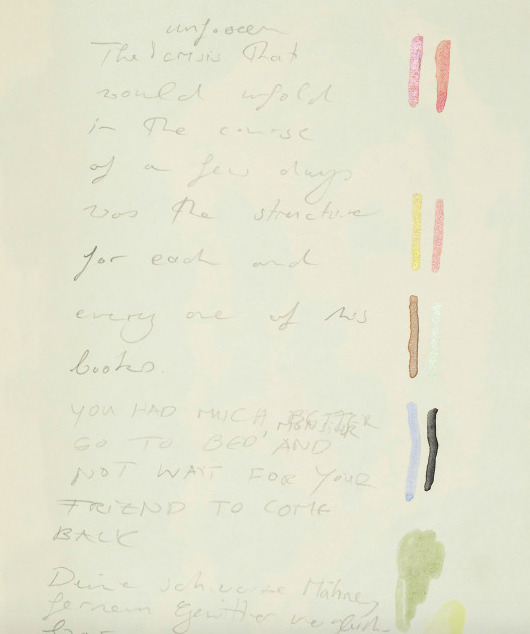 unforseen
The crisis that
would unfold
in the course
of a few days
was the structure
for each and
every one of his
books.
YOU HAD MUCH BETTER
GO TO BED, MONSIEUR AND
NOT WAIT FOR YOUR
FRIEND TO COME
BACK
Deine schwarze Mähne,
fernem Gewitter